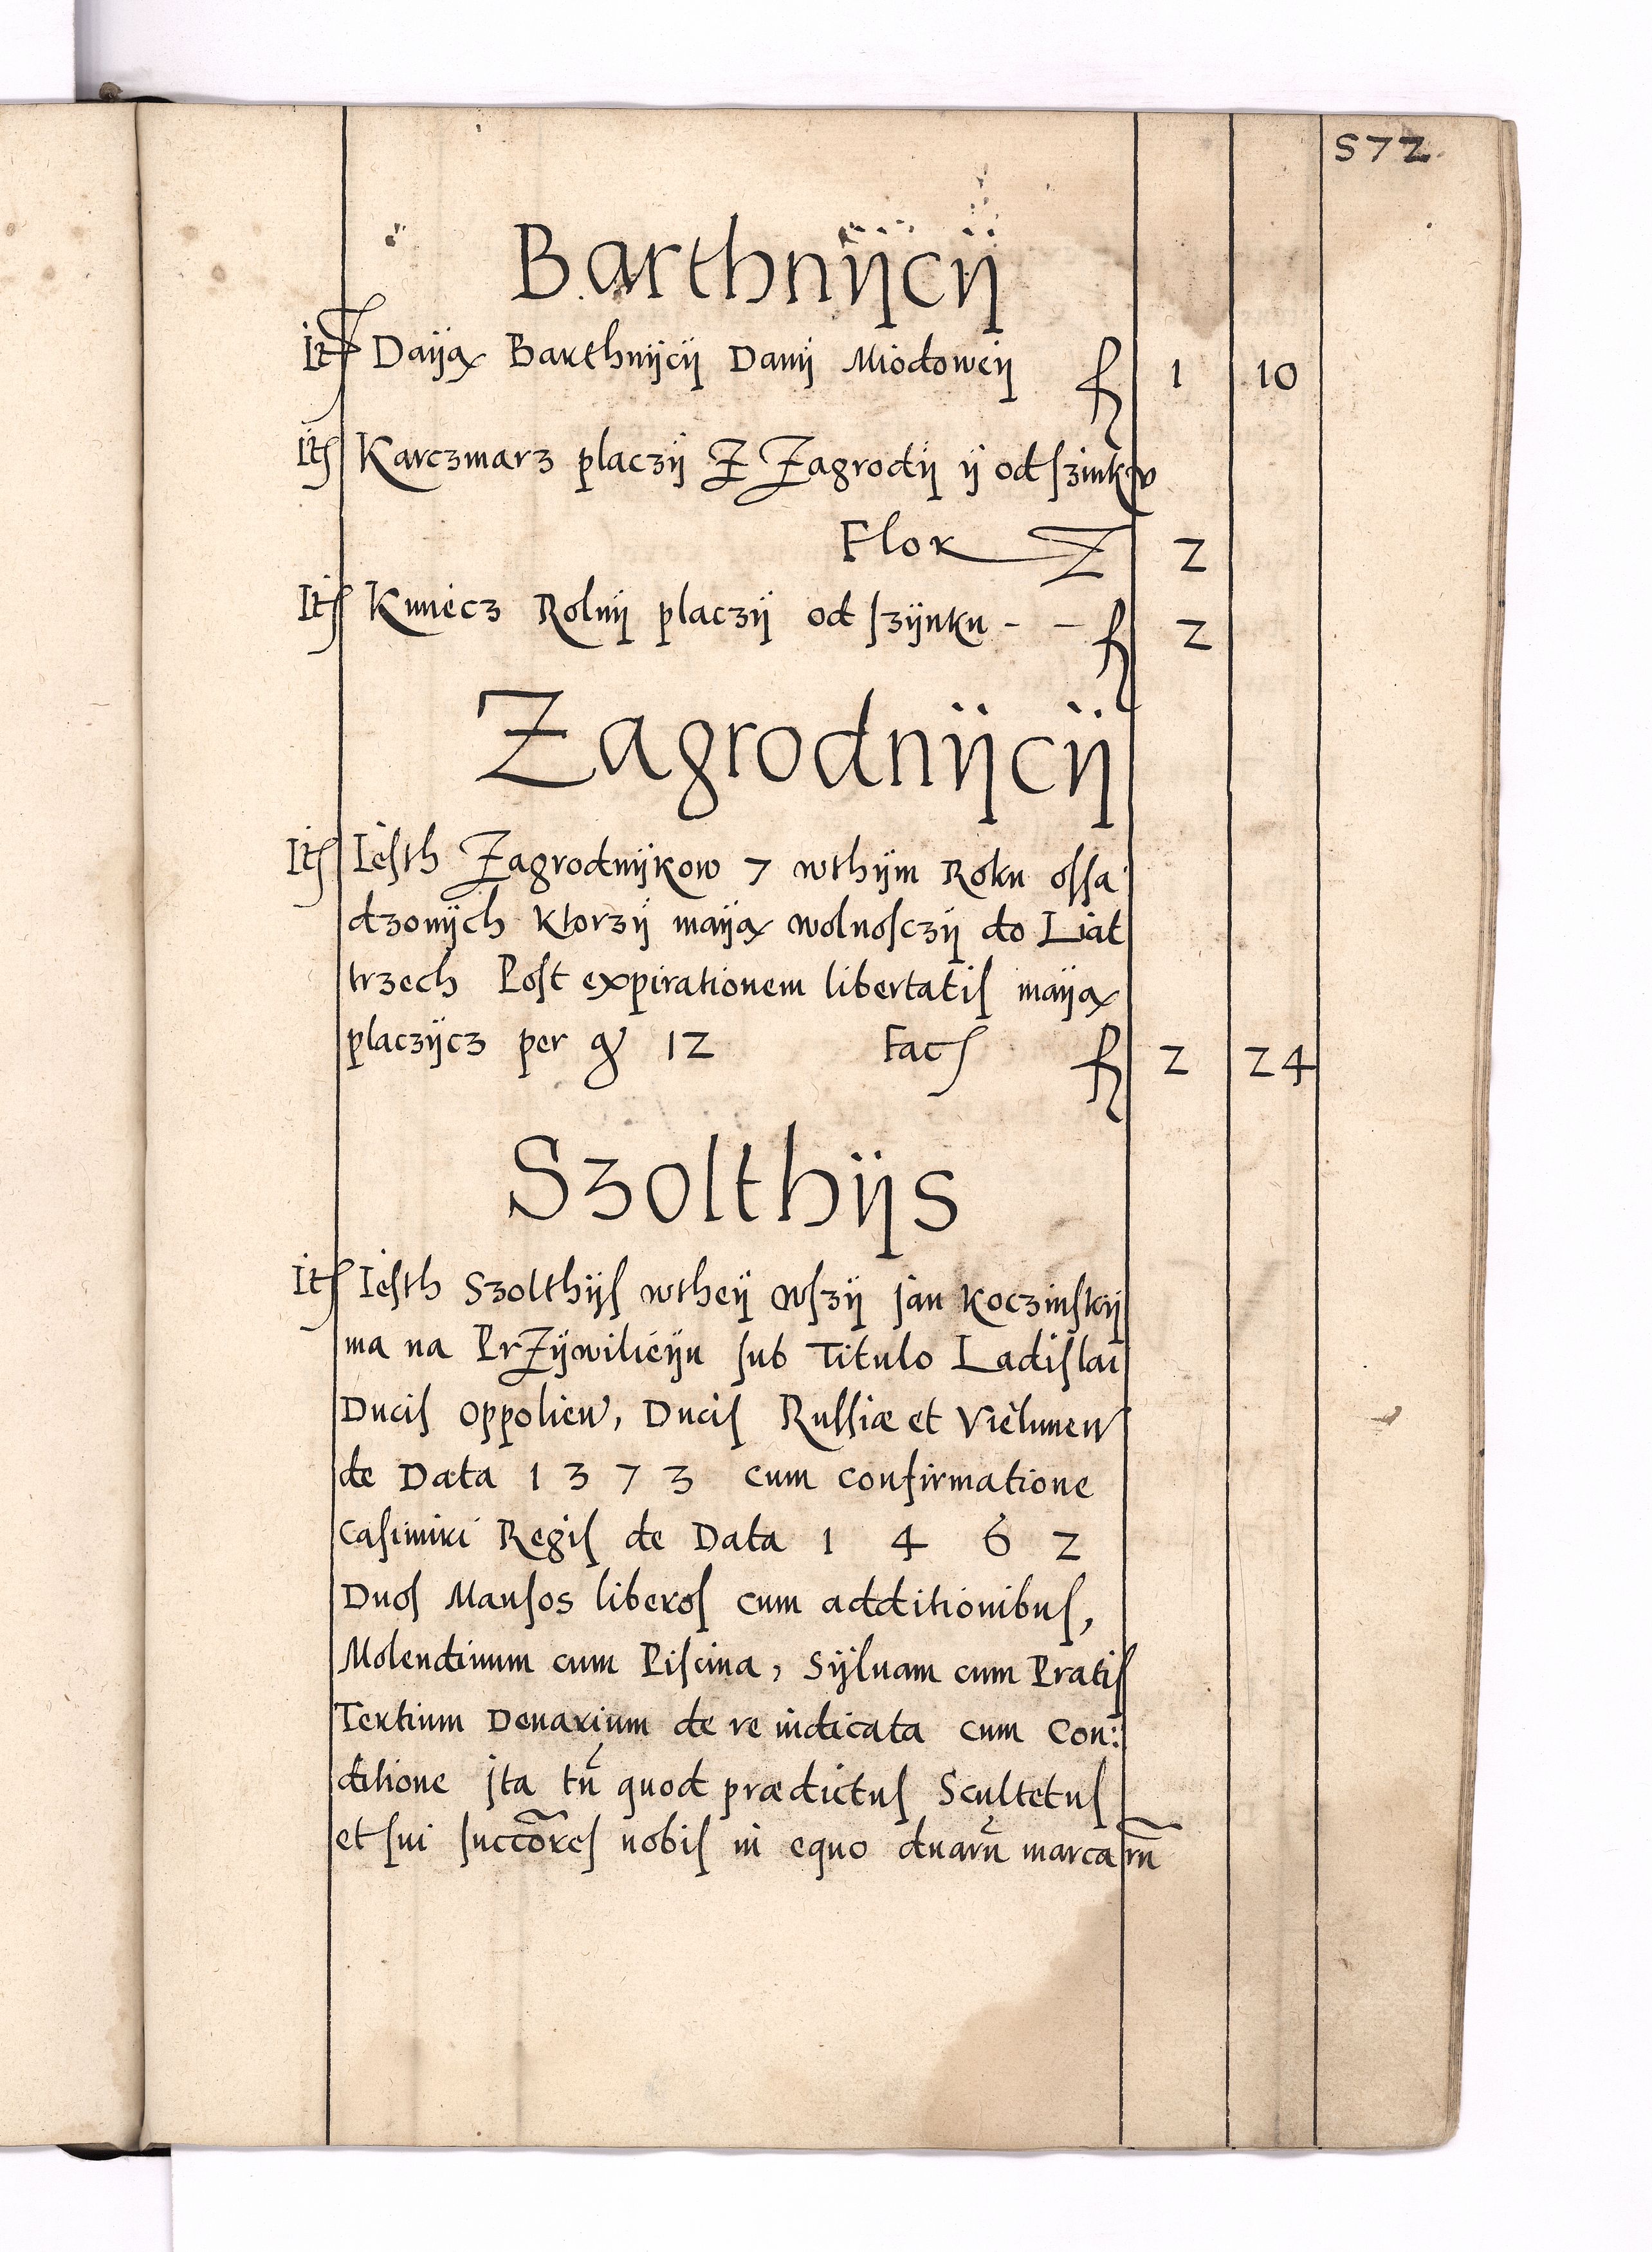 572
Barthnÿcÿ
Itẽ Daÿą Barthnÿcÿ Danÿ Miodoweÿ fl 1 10
Itẽ Karczmarz placzÿ Z Zagrodÿ ÿ od szinkv
Flor Z 2
Itẽ Kmiecz Rolnÿ placzÿ od szÿnku - - fl 2
Zagrodnÿcÿ
Itẽ Iesth Zagrodnÿkow 7 wthÿm Roku ossa
dzonÿch ktorzÿ maÿą wolnosczÿ do Liat
trzech Post expirationem libertatis maÿą
placzÿcz per gr 12 Fac fl 2 24
Szolthÿs
Itẽ Iesth Szolthÿs wtheÿ wszÿ jan Koczinskÿ
ma na PrZÿwilieÿu sub Titulo Ladislai
Ducis Oppolien, Ducis Russiæ et Vielunen
de Data 1373 cum confirmatione
Casimiri Regis de Data 1462
Duos Mansos liberos cum additionibus,
Molendinum cum Piscina, Sÿluam cum Pratis
Tertium Denarium de re iudicata cum Con:
ditione jta tñ quod prædictus Scultetus
et sui succõres nobis in equo duarũ marcarũ